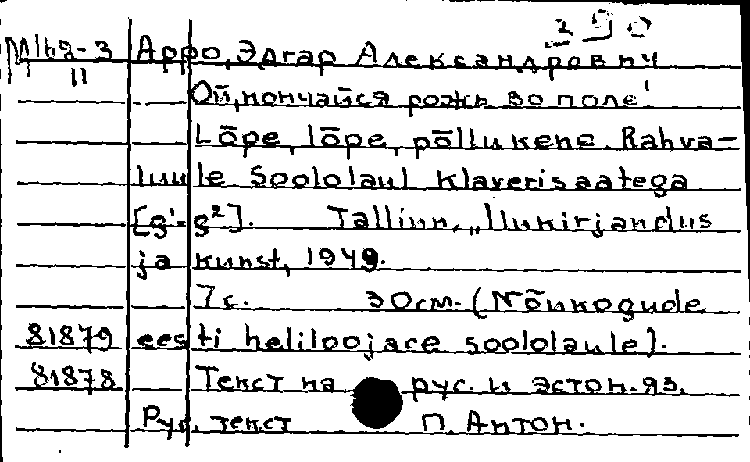 290
М162-3 Арро, Эдгар Александрович
11
Ой, кончайся рожь во поле!
Lõpe, lõpe, põllukene. Rahva-
luule Soololaul klaverisaatega
[g¹-g²]. Tallinn, „Ilukirjandus
ja kunst, 1949.
7 с. 30 cm. (Nõukogude
81879 eesti heliloojace soololaule).
81878 Текст на рус. и эстон. яз.
Рус. текст П. Антон.